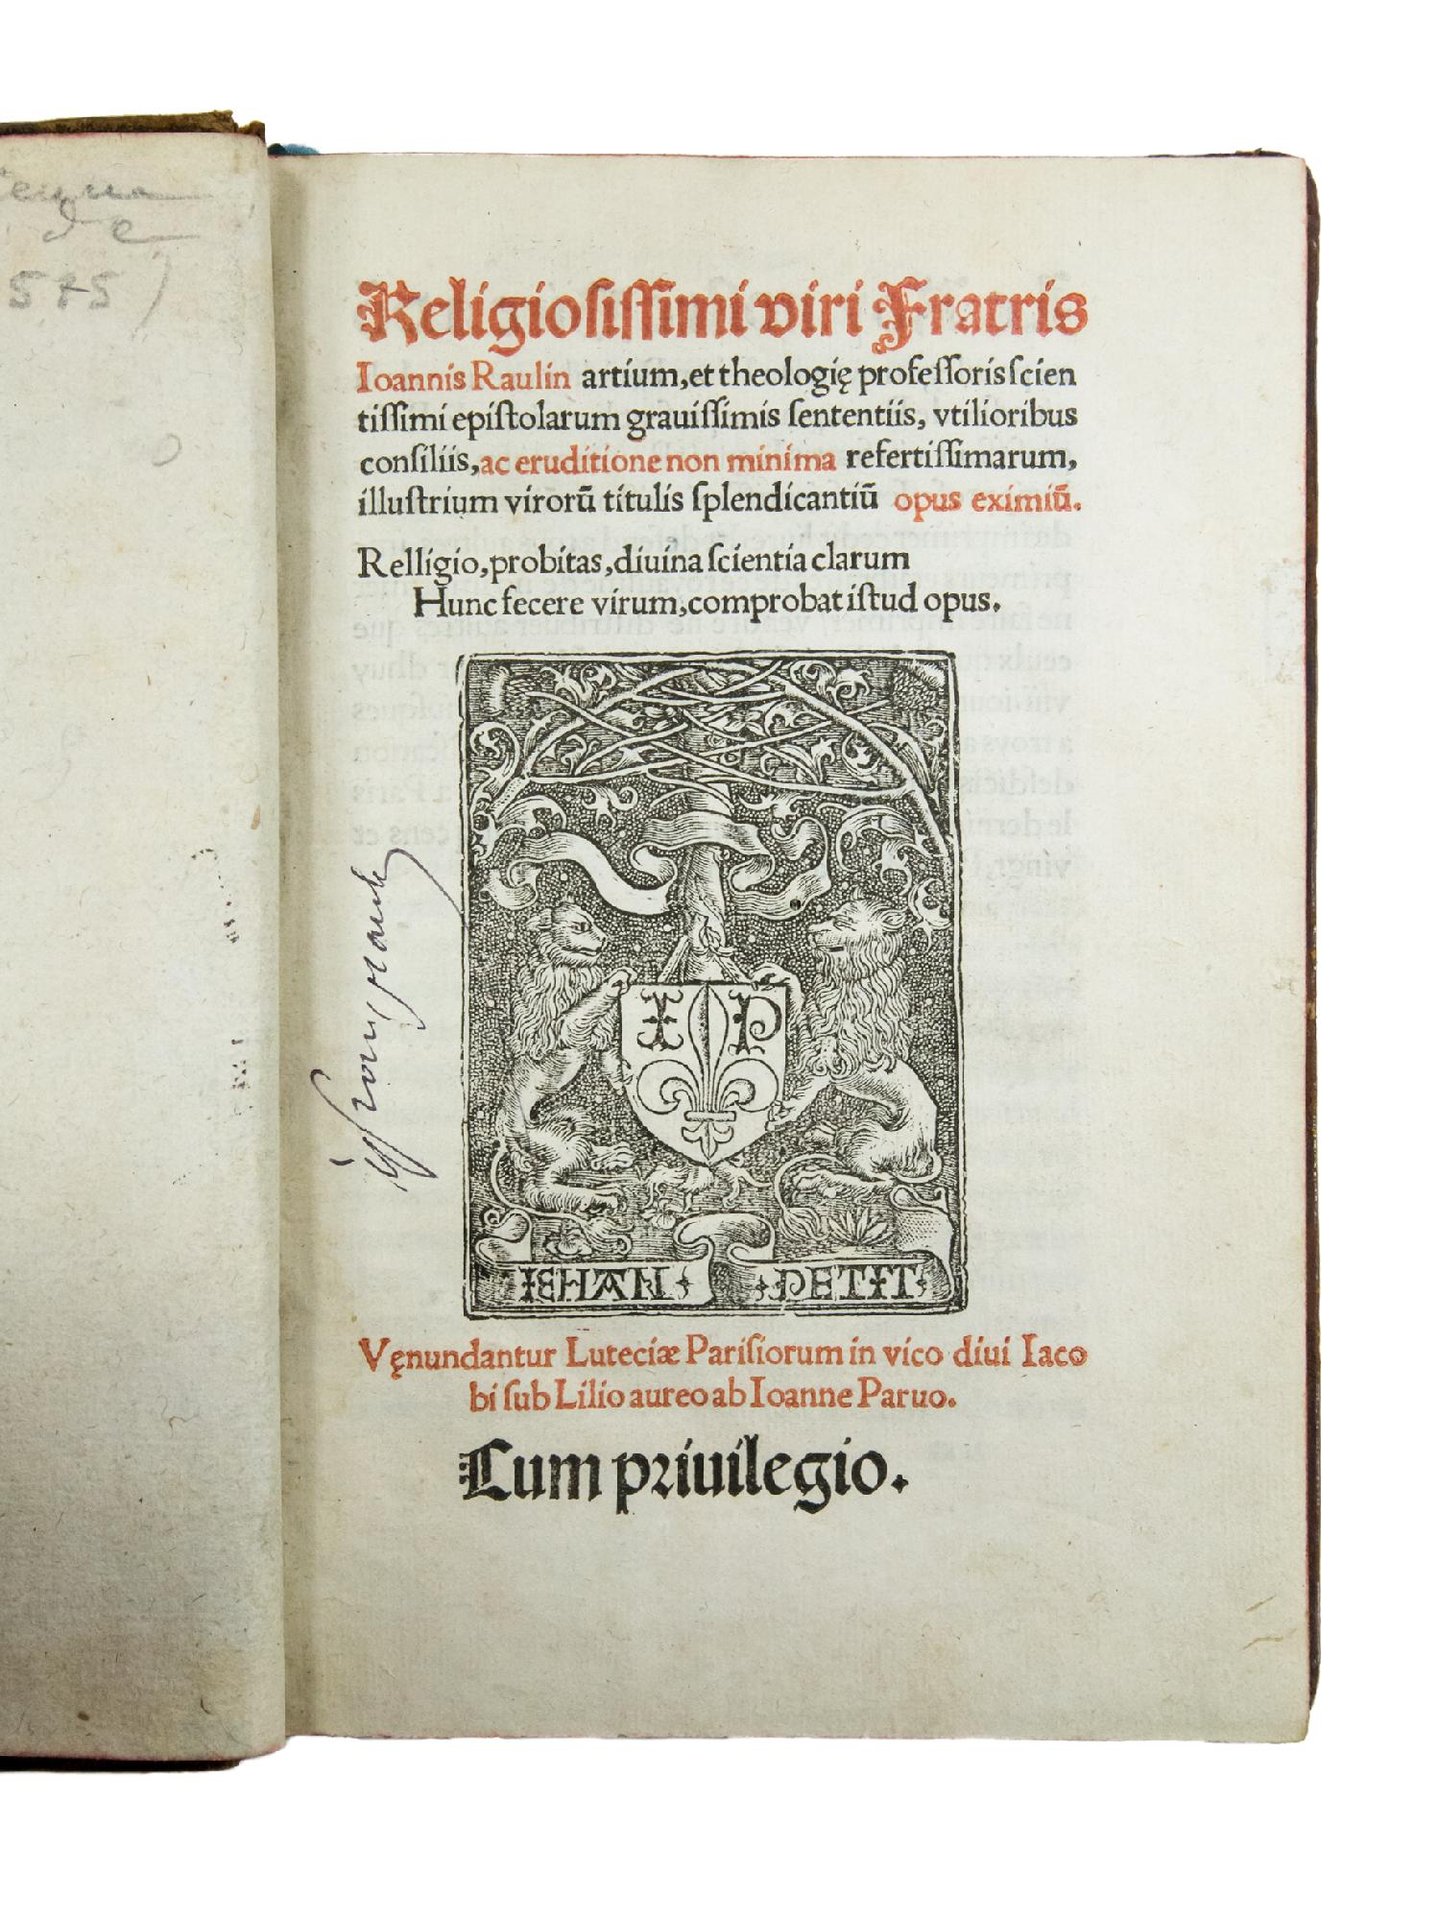 Religioſiſſimi viri Fratris
Ioannis Raulin artium, et theologię profeſſoris ſcien
tiſſimi epiſtolarum grauiſſimis ſententiis, vtilioribus
conſiliis, ac eruditione non minima refertiſſimarum,
illuſtrium virorū titulis ſplendicantiū opus eximiū.
Relligio, probitas, diuina ſcientia clarum
Hunc fecere virum, comprobat iſtud opus.
I P
IEHAN PETIT
Vęnundantur Luteciæ Pariſiorum in vico diui Iaco
bi ſub Lilio aureo ab Ioanne Paruo.
Cum priuilegio.